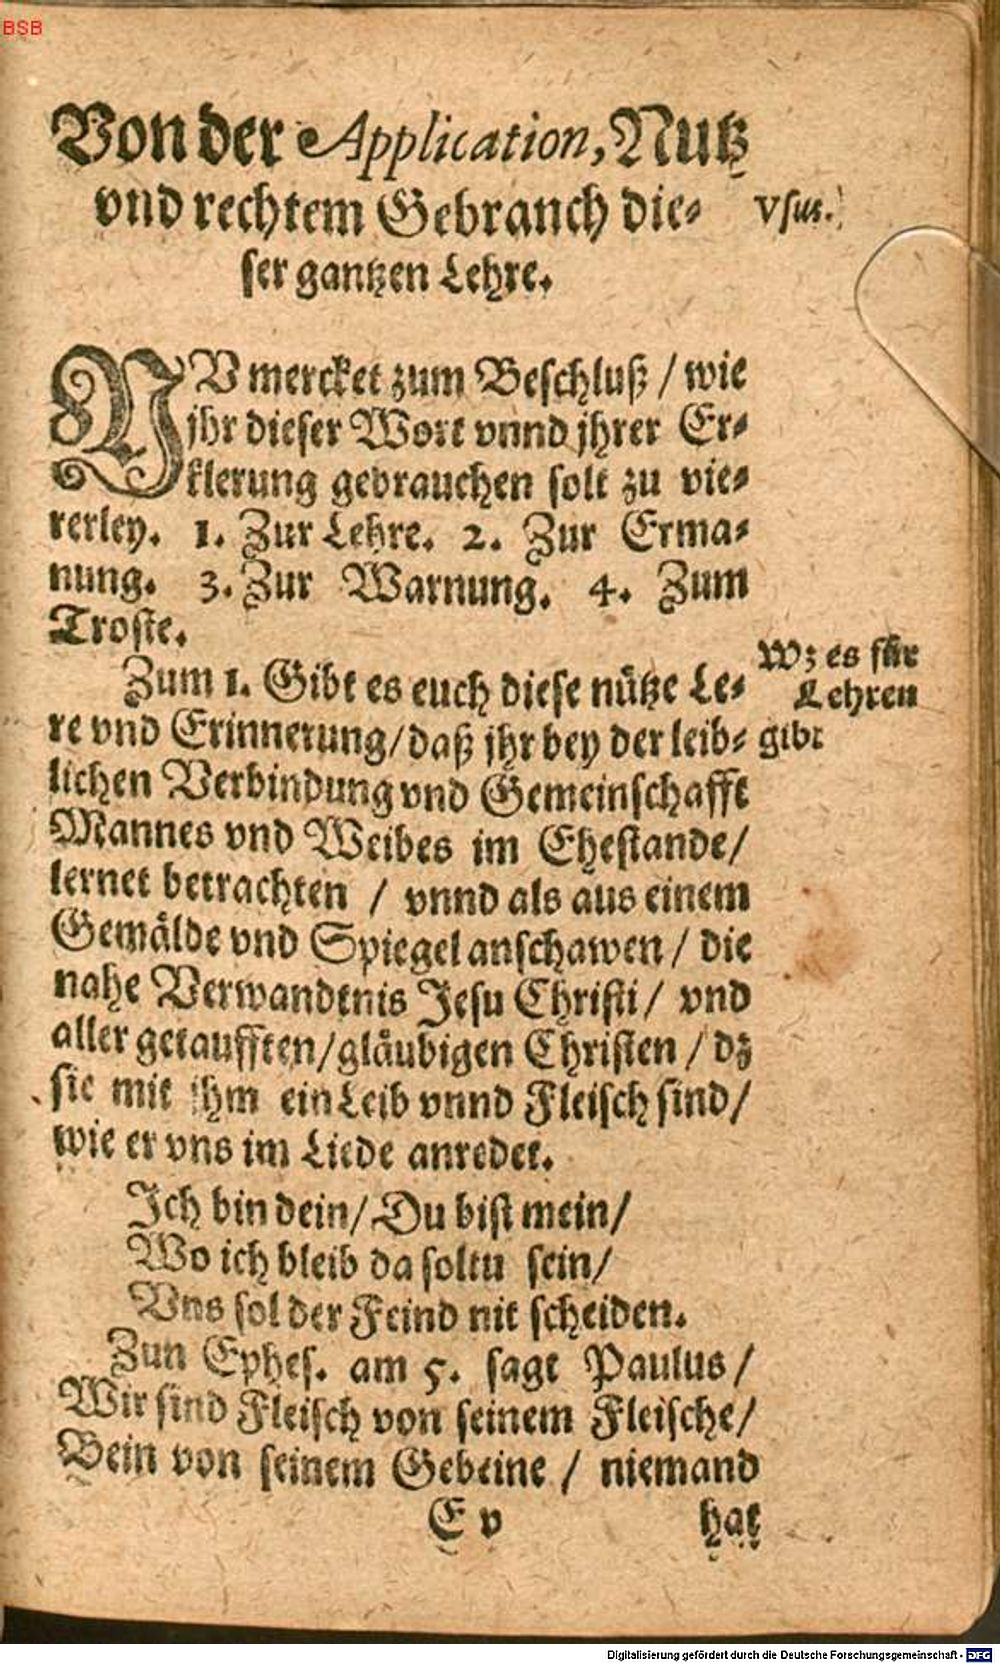 BSB
Von der Application, Nutz
vnd rechtem Gebranch die-
Vsus.
ser gantzen Lehre.
NU mercket zum Beschluß / wie
jhr dieser Wort vnnd jhrer Er-
klerung gebrauchen solt zu vie-
rerley. 1. Zur Lehre. 2. Zur Erma-
nung. 3. Zur Warnung. 4. Zum
Troste.
Zum 1. Gibt es euch diese nütze Le-
re vnd Erinnerung/ daß jhr bey der leib-
Wz es für
Lehren
gibt
lichen Verbindung vnd Gemeinschafft
Mannes vnd Weibes im Ehestande/
lernet betrachten / vnnd als aus einem
Gemälde vnd Spiegel anschawen / die
nahe Verwandtnis Jesu Christi/ vnd
aller getaufften/gläubigen Christen / dz
sie mit jhm ein Leib vnnd Fleisch sind/
wie er vns im Liede anredet.
Ich bin dein/ Du bist mein/
Wo ich bleib da soltu sein/
Vns sol der Feind nit scheiden.
Zun Ephes. am 5. sagt Paulus /
Wir sind Fleisch von seinem Fleische/
Bein von seinem Gebeine / niemand
E v hat
Digitalisierung gefördert durch die Deutsche Forschungsgemeinschaft - DFG